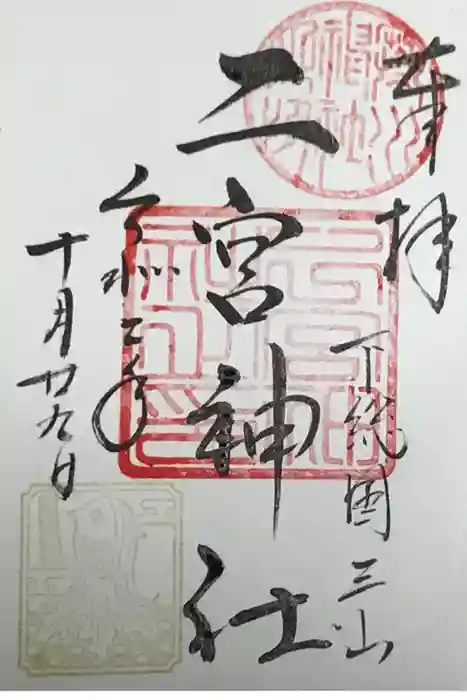 奉拝
下総国三山
二宮神社
令和二年
十月廿九日